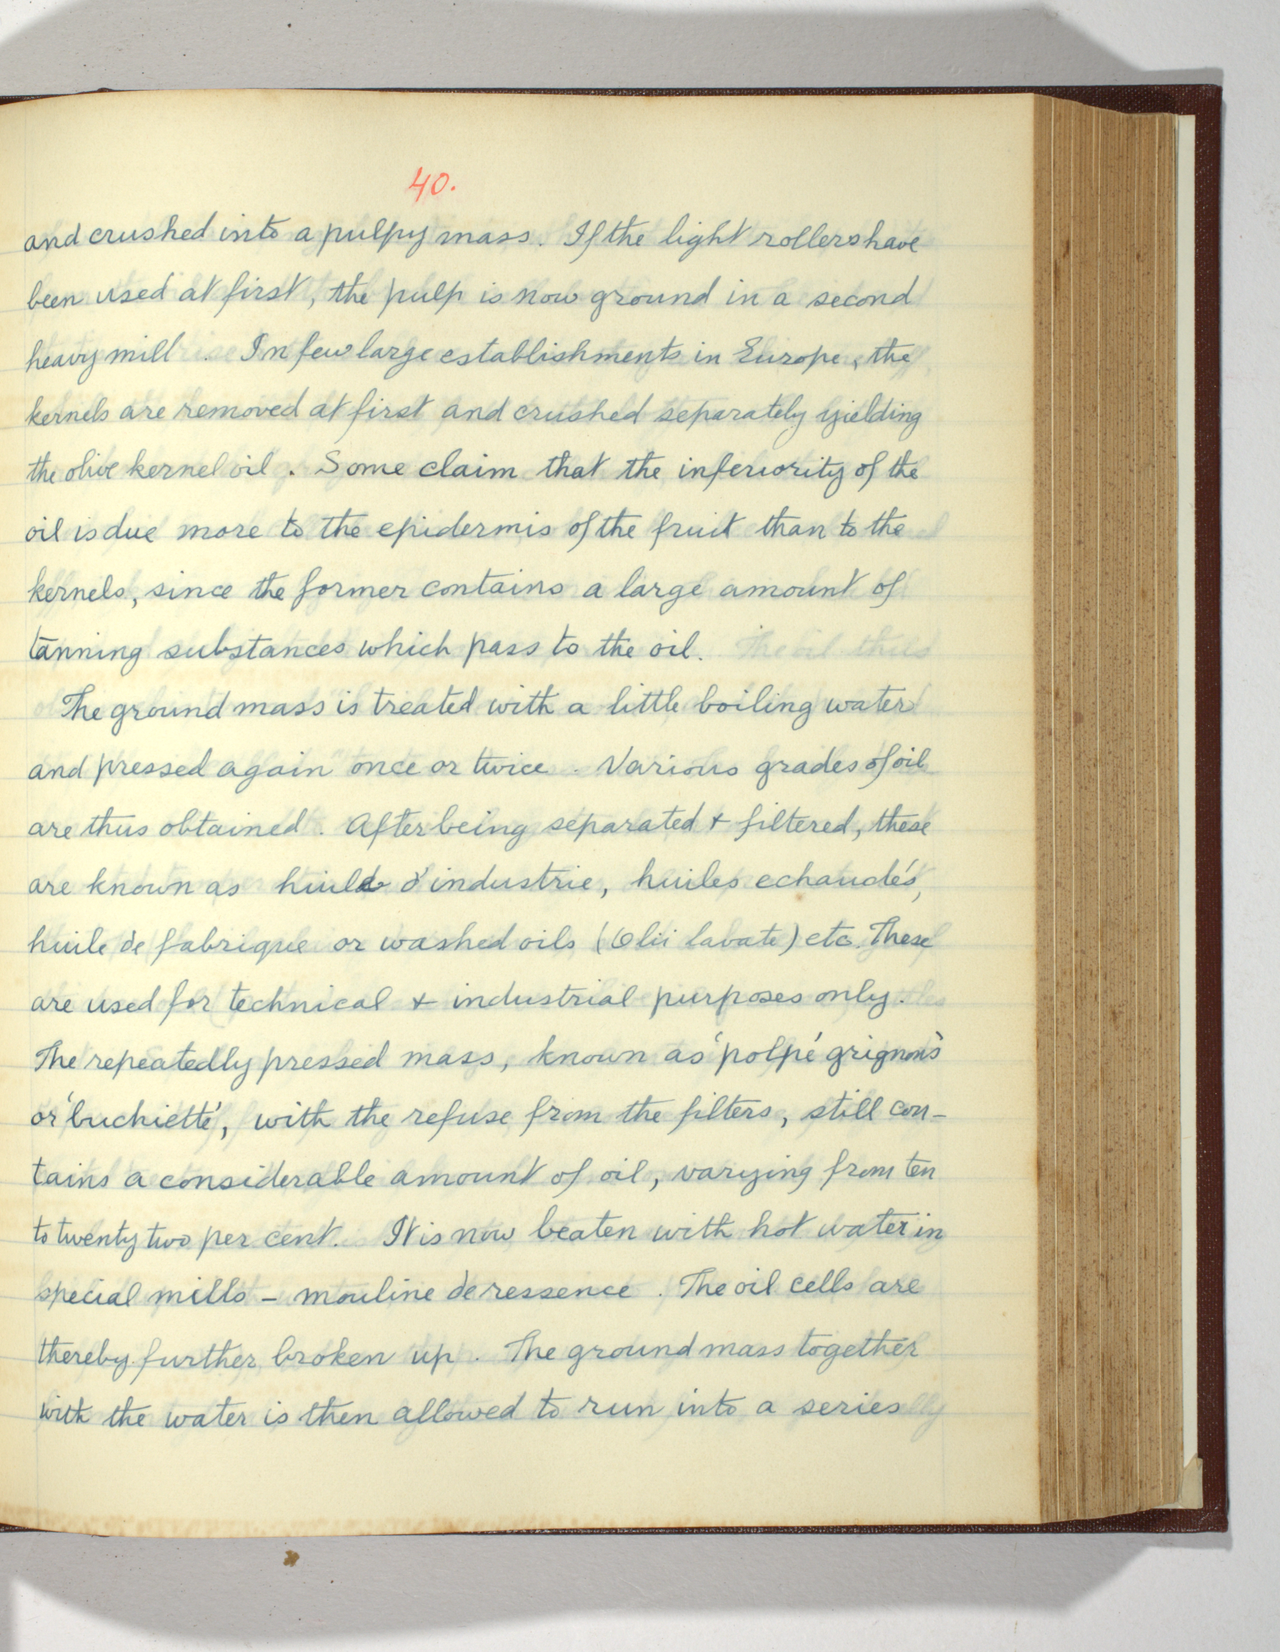 40.
and crushed into a pulpy mass. If the light rollers have
been used at first, the pulp is now ground in a second
heavy mill. In few large establishments in Europe, the
kernels are removed at first and crushed separately yielding
the olive kernel oil. Some claim that the inferiority of the
oil is due more to the epidermis of the fruit than to the
kernels, since the former contains a large amount of
tanning substances which pass to the oil.
The ground mass is treated with a little boiling water
and pressed again once or twice. Various grades of oil
are thus obtained. After being separated & filtered, these
are known as d'industrie, huiles echaudés,
huile de fabrique or washed oils (Olii lavate) etc. These
are used for technical & industrial purposes only.
The repeatedly pressed mass, known as 'polpé grignons'
or 'buchietté', with the refuse from the filters, still con-
tains a considerable amount of oil, varying from ten
to twenty two per cent. It is now beaten with hot water in
special mills - mouline de ressence. The oil cells are
thereby further broken up. The ground mass together
with the water is then allowed to run into a series